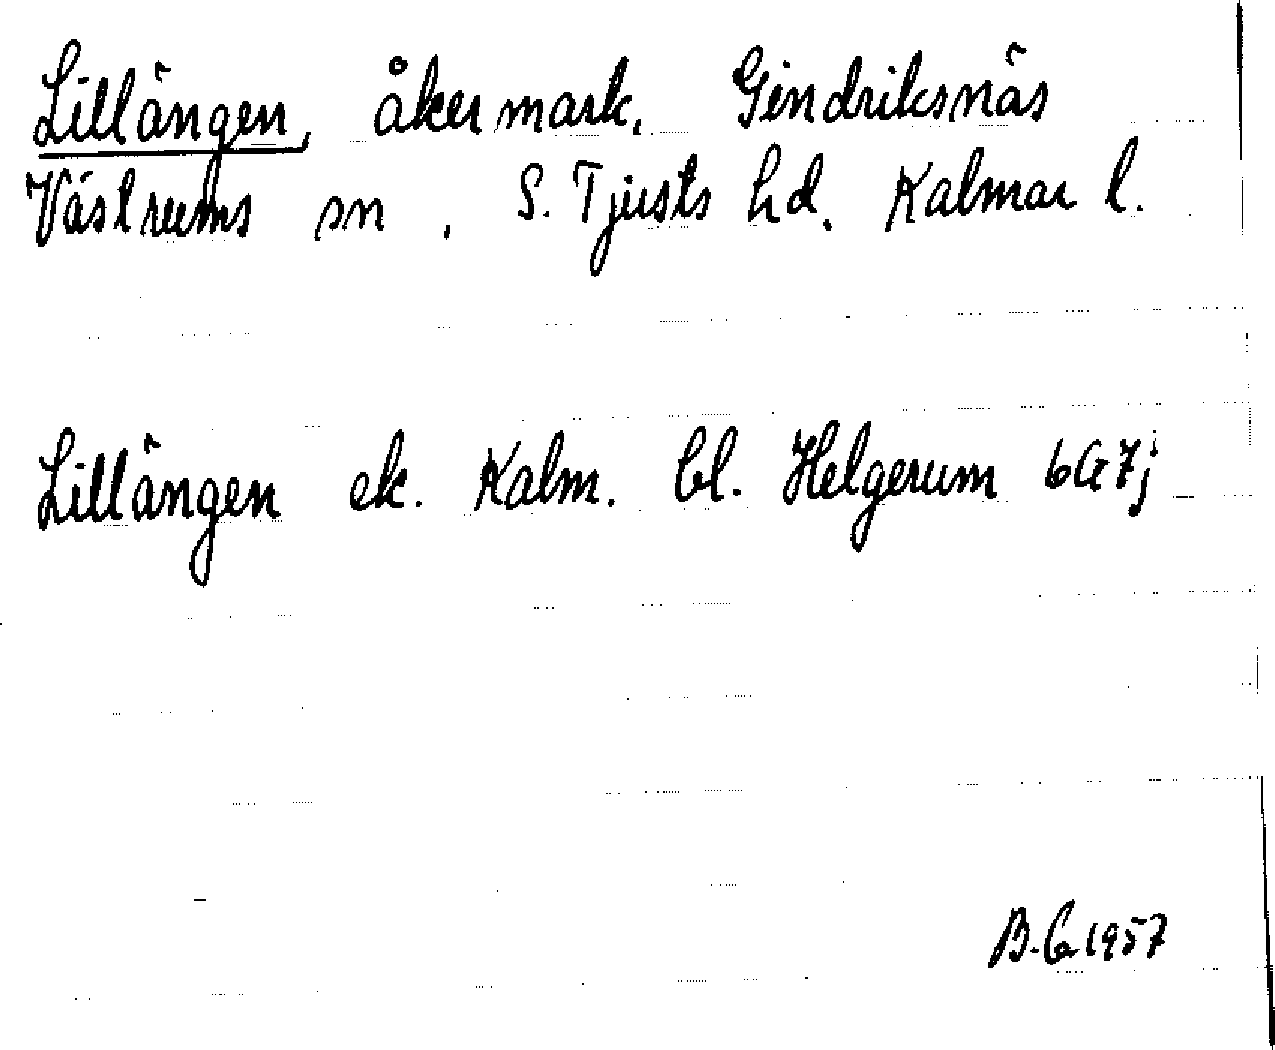 Lillängen, åkermark, Gindriksnäs
Västrums sn, S. Tjusts hd. Kalmar l.
Lillängen ek. Kalm. bl. Helgerum 6G7j
B.G. 1957